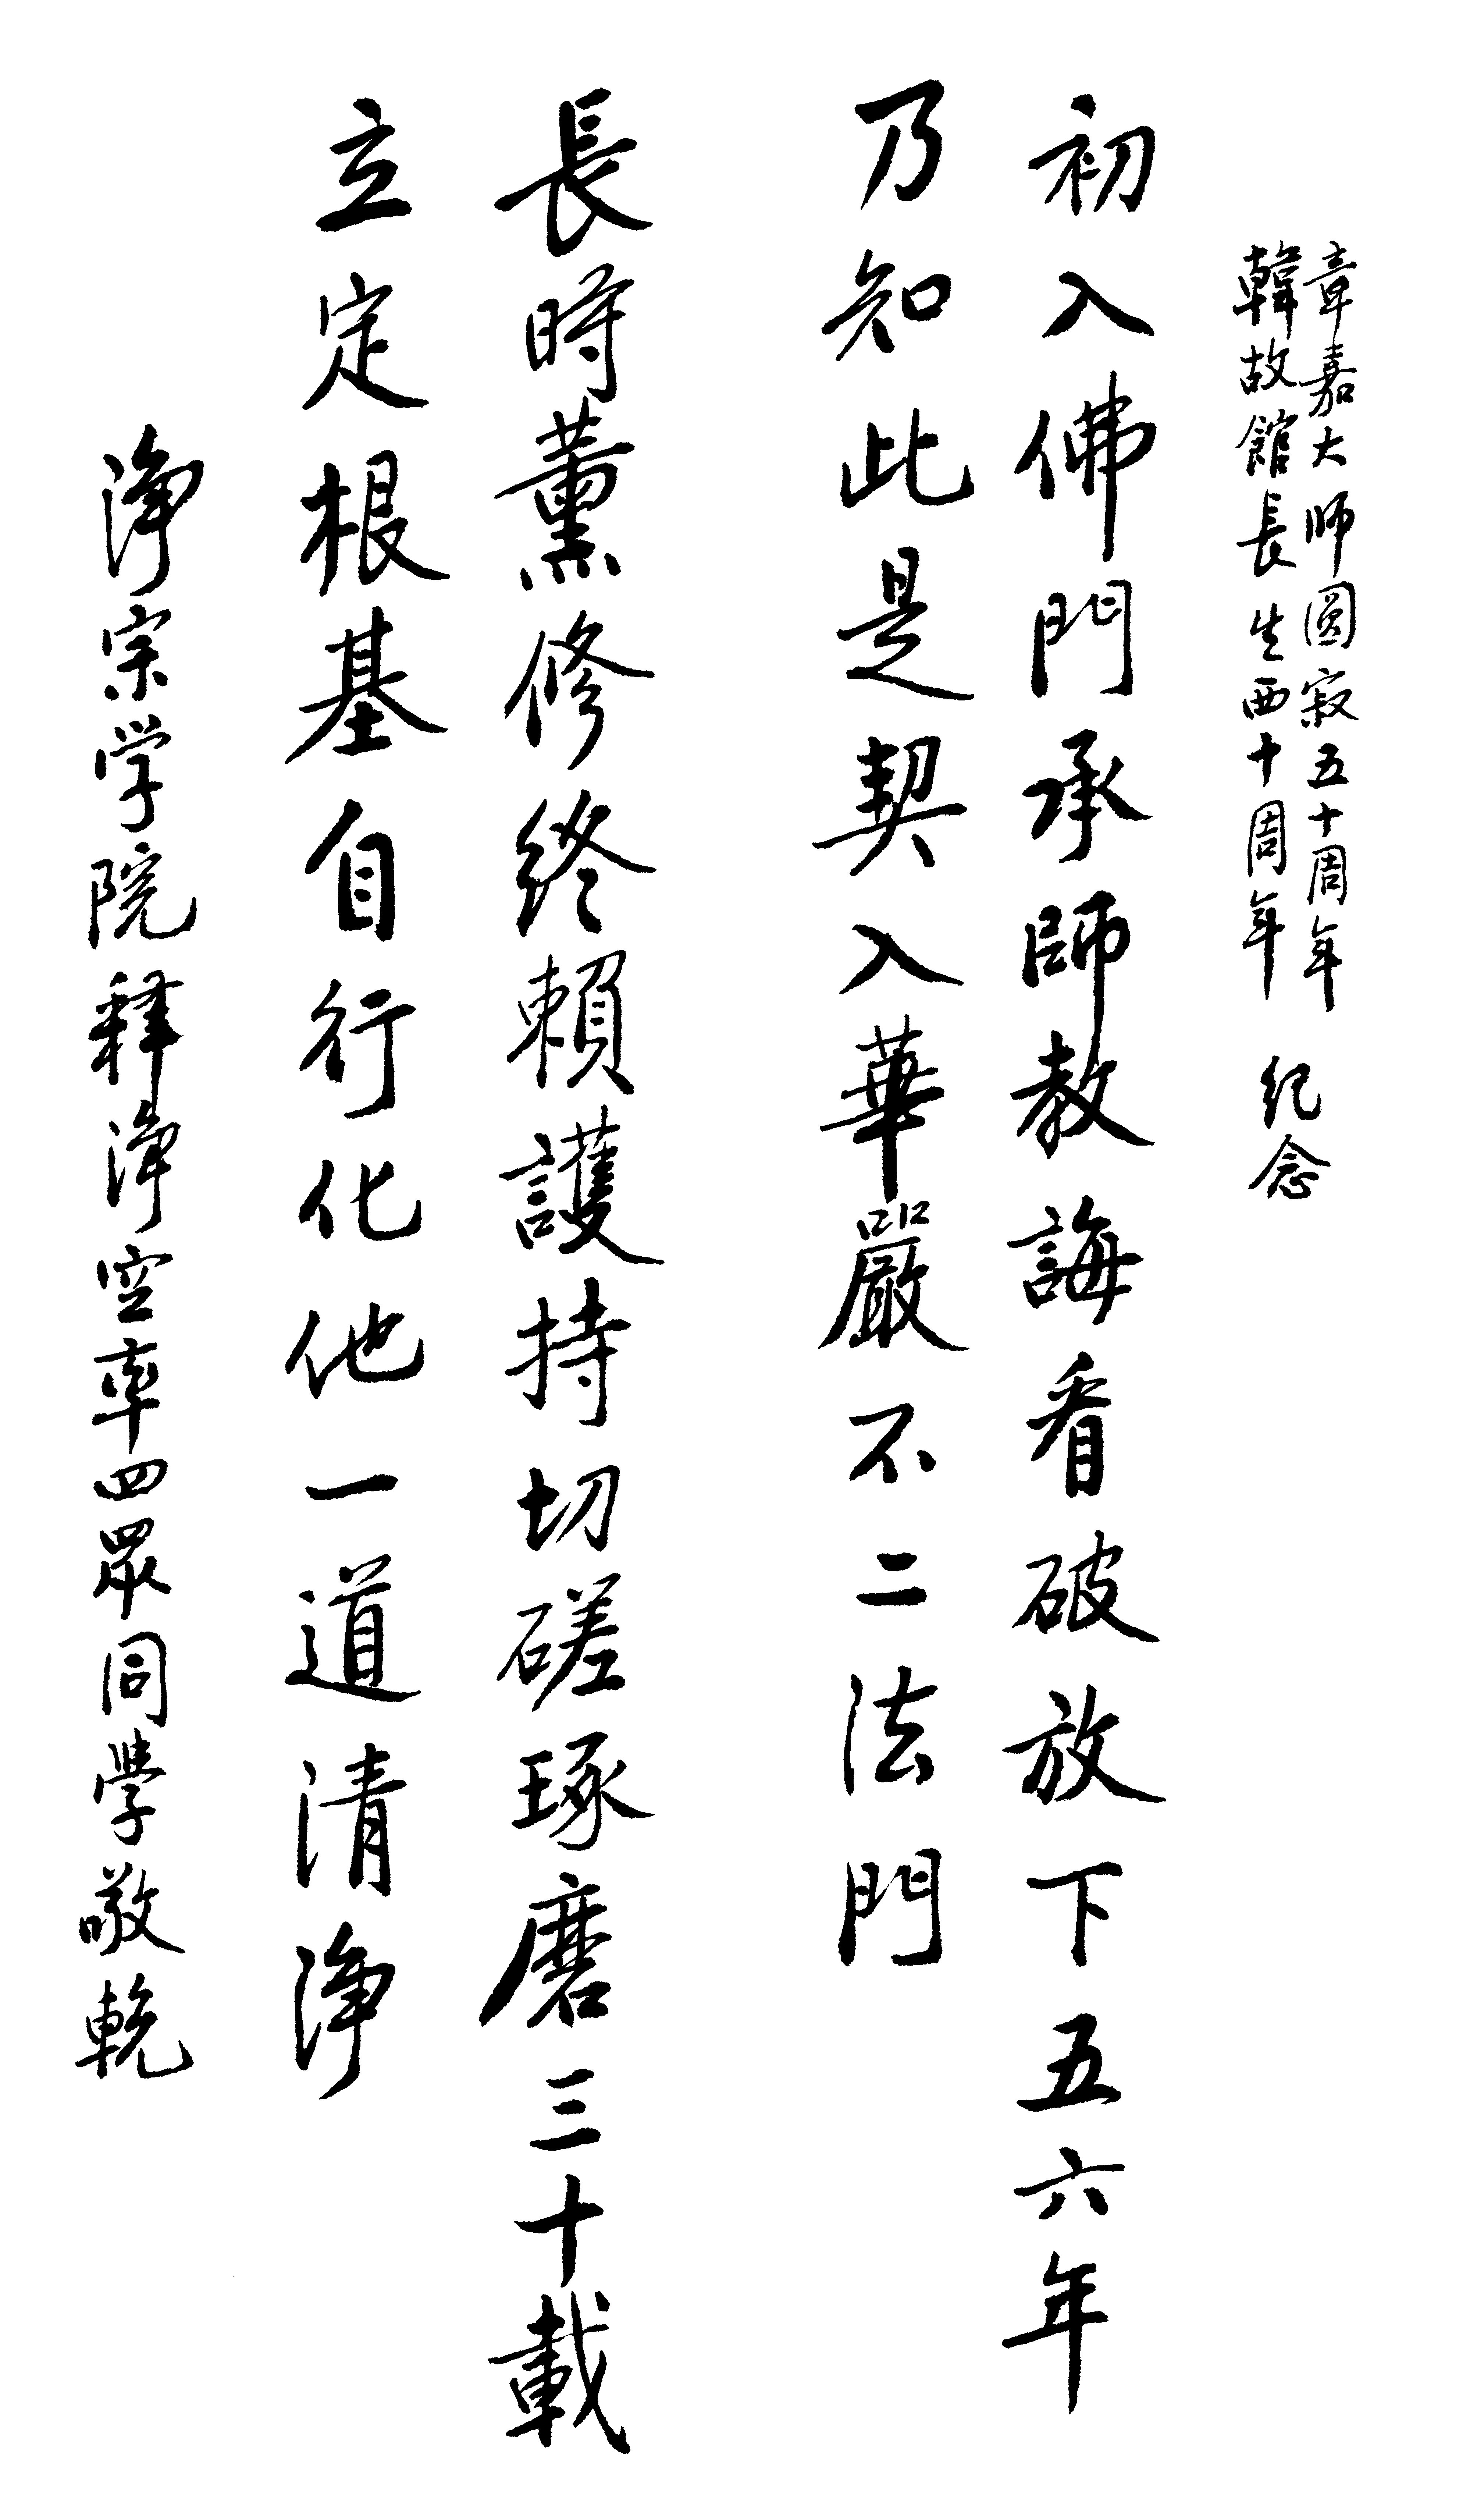 章嘉大師圓寂五十周年
韓故館長生西十周年
纪念
初入佛門承師教誨看破放下五六年
乃知此是契入華嚴不二法門
長時薰修終賴護持切磋琢磨三十載
立定根基自行化他一道清淨
淨宗学院釋淨空率四眾同學敬輓